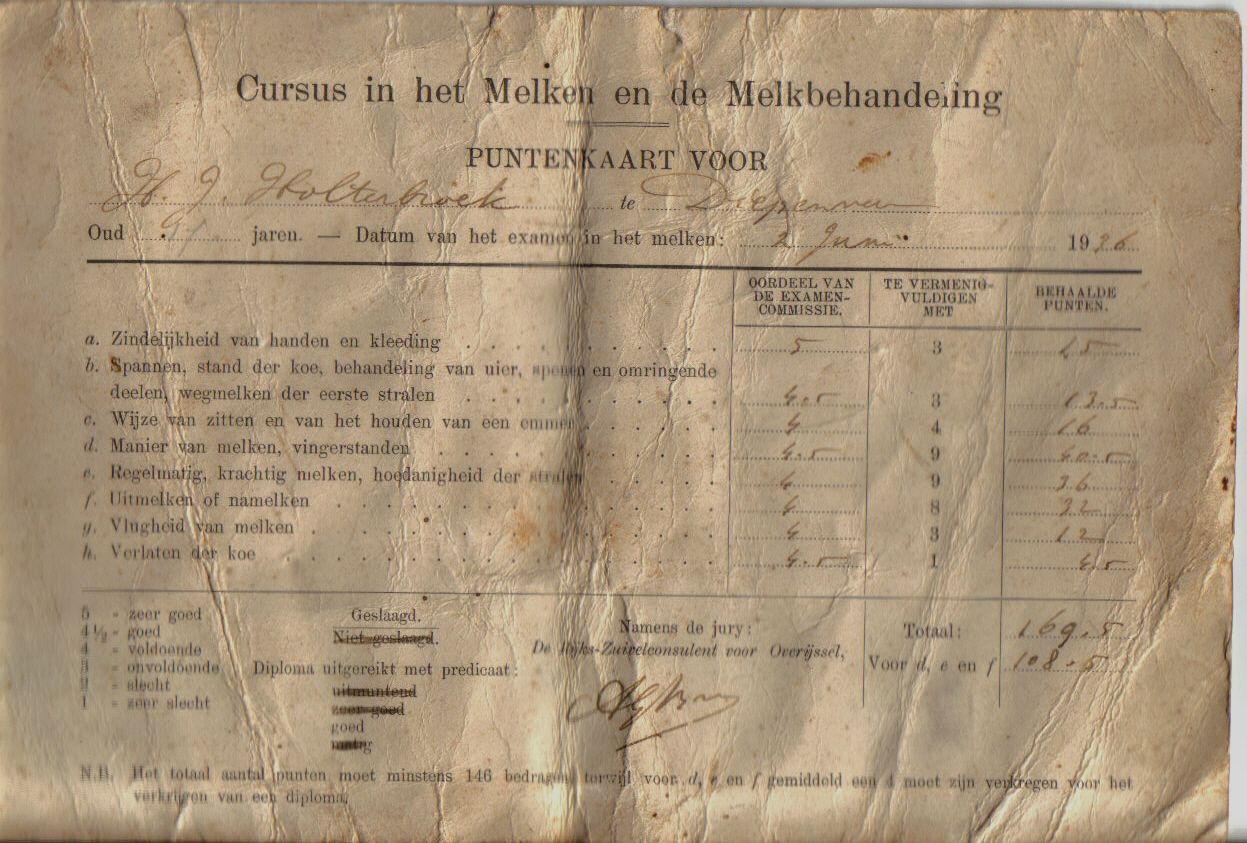 Cursus in het Melken en de Melkbehandeling
PUNTENKAART VOOR
H. J. Holterbroek te Diepenveen
Oud jaren. — Datum van het examen in het melken: 2 Juni 1926
OORDEEL VAN DE EXAMEN-COMMISSIE. TE VERMENIG-VULDIGEN MET BEHAALDE PUNTEN.
a. Zindelijkheid van handen en kleeding 5 3 15
b. Spannen, stand der koe, behandeling van uier, spenen en omringende
deelen, wegmelken der eerste stralen 4.5 3 13.5
c. Wijze van zitten en van het houden van een emmer 4 4 16
d. Manier van melken, vingerstanden 4.5 9 40.5
e. Regelmatig, krachtig melken, hoedanigheid der stralen 4 9 36
f. Uitmelken of namelken 4 8 32
g. Vlugheid van melken 4 3 12
h. Verlaten der koe 4.5 1 4.5
5 = zeer goed
4½ = goed
4 = voldoende
3 = onvoldoende
2 = slecht
1 = zeer slecht
Geslaagd.
Niet geslaagd.
Diploma uitgereikt met predicaat:
uitmuntend
zeer goed
goed
matig
Namens de jury:
De Rijks-Zuivelconsulent voor Overijssel,
Totaal: 169.5
Voor d, e en f 108.5
N.B. Het totaal aantal punten moet minstens 146 bedragen, terwijl voor d, e en f gemiddeld een 4 moet zijn verkregen voor het
verkrijgen van een diploma.